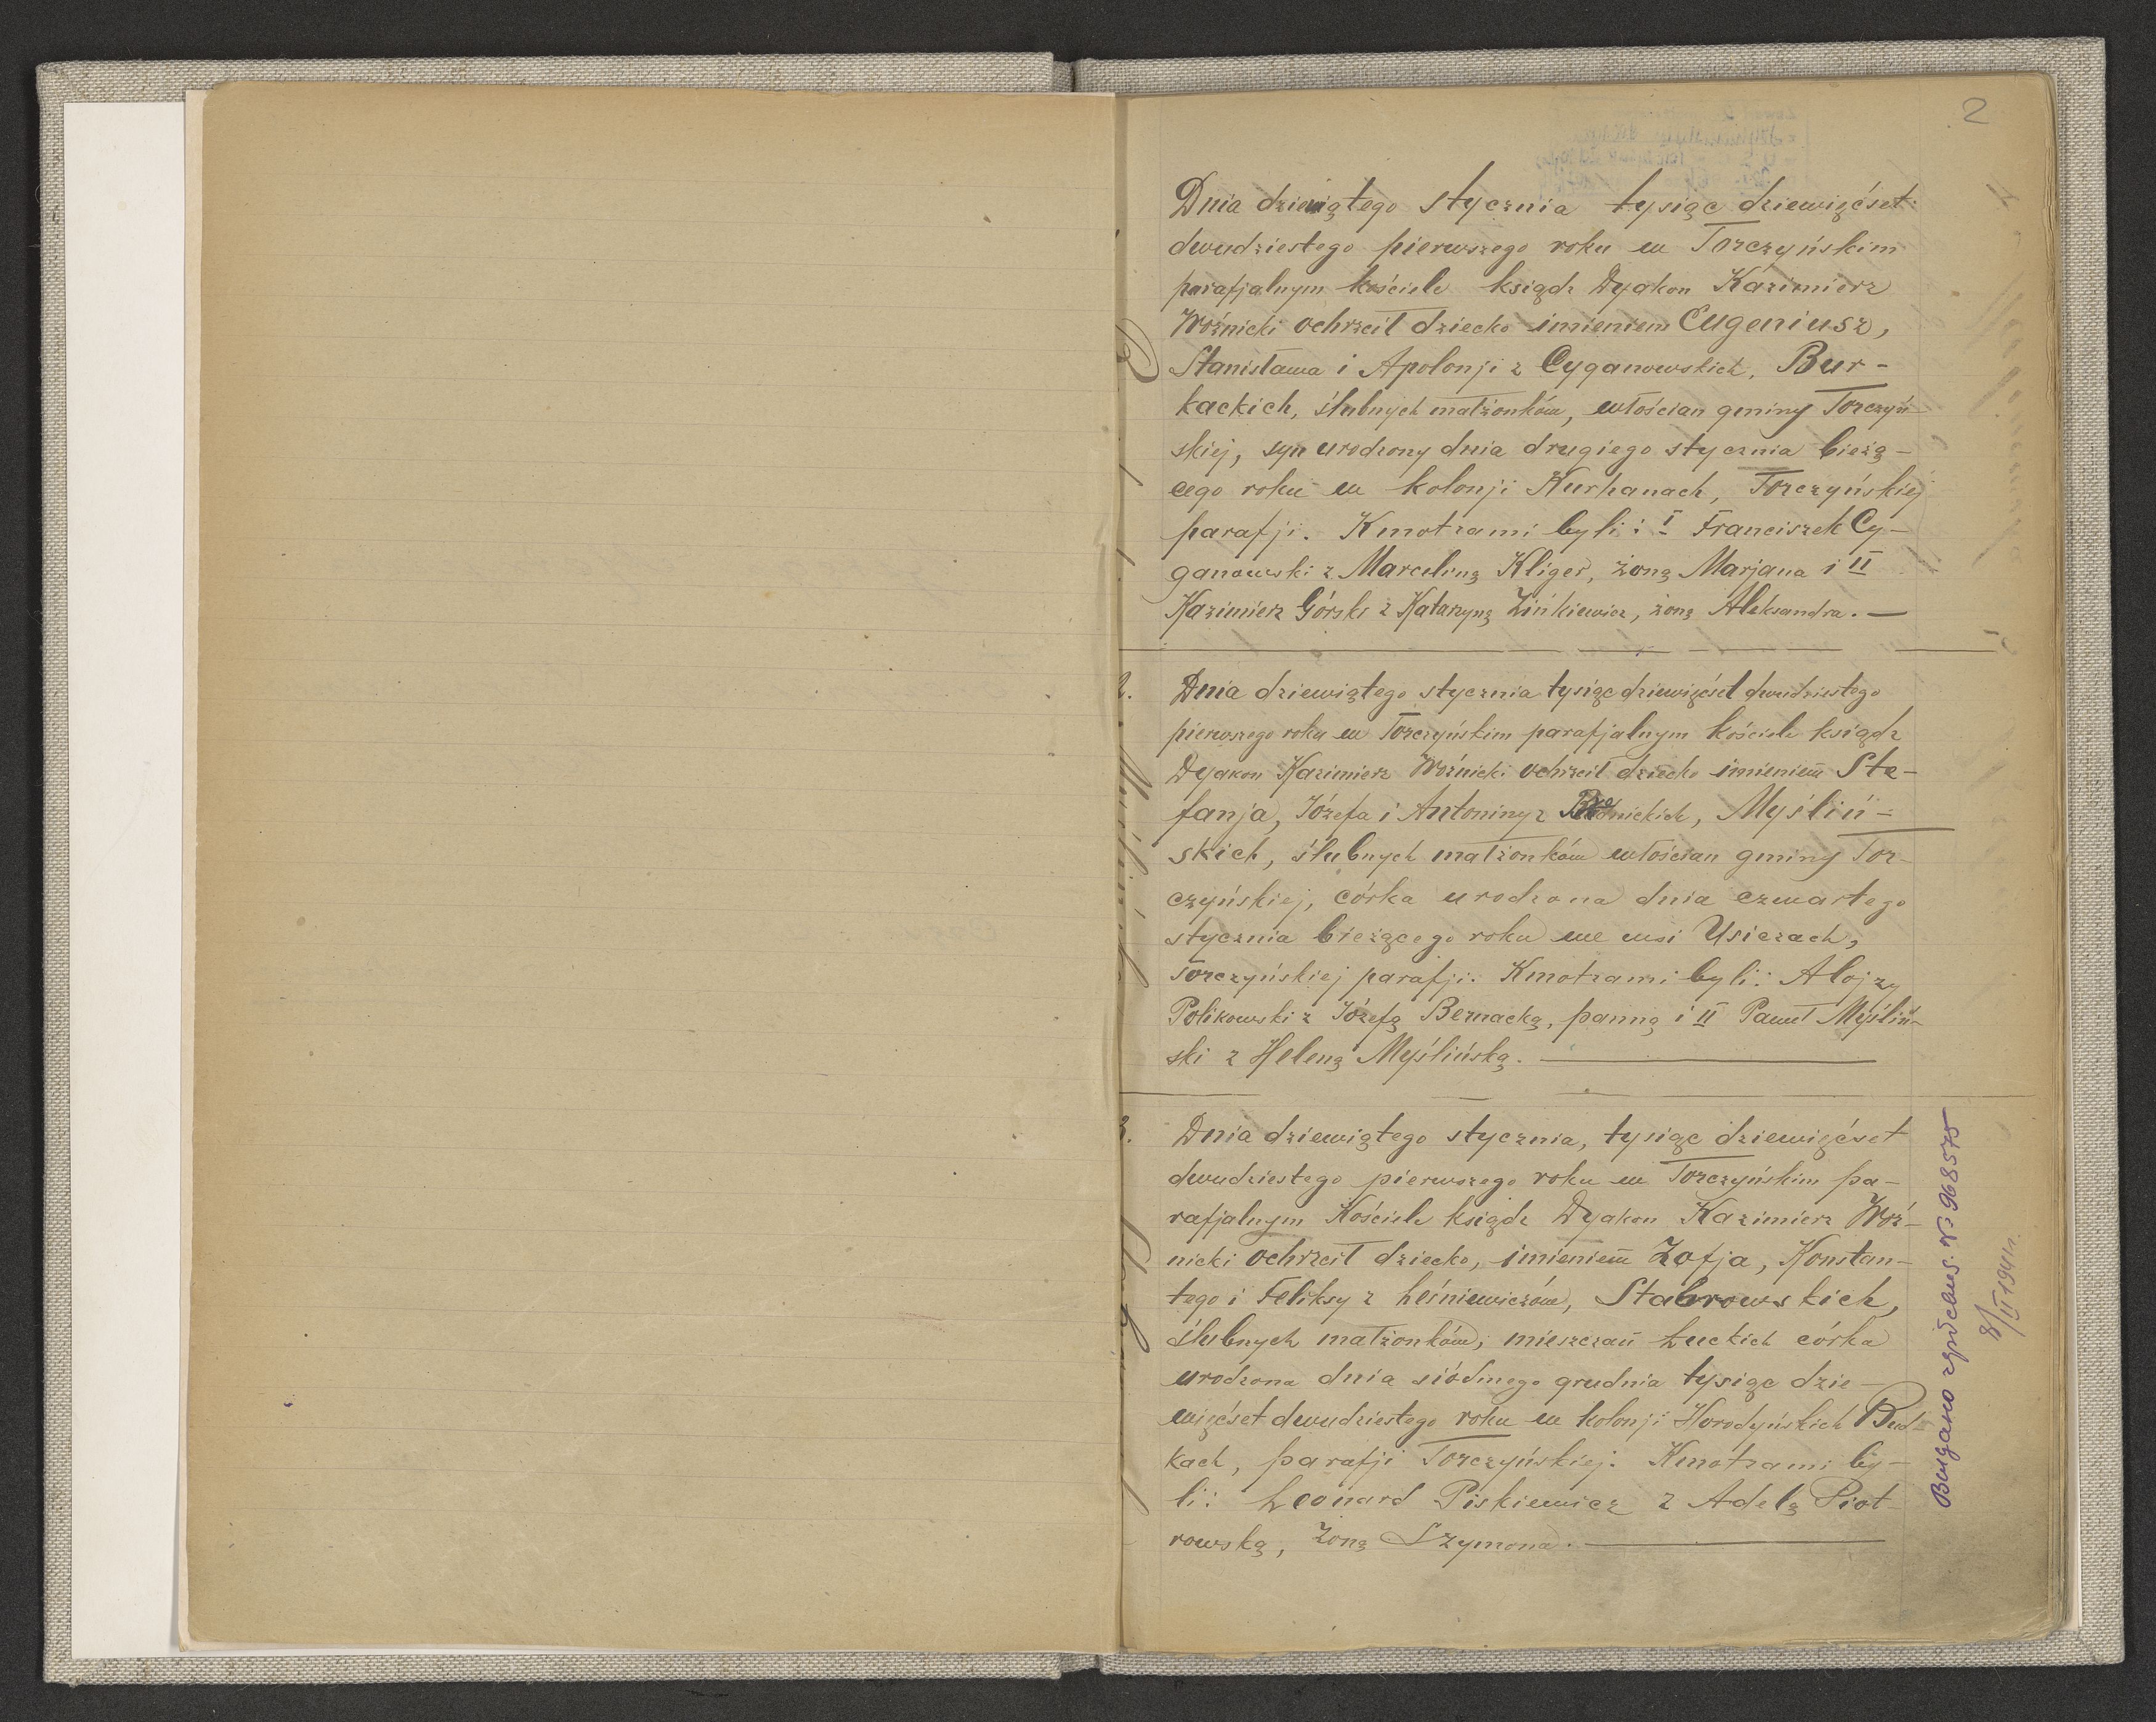 2
Dnia dziewiątego stycznia tysiąc dziewięćset
dwudziestego pierwszego roku w Torczyńskim
parafjalnym kościele ksiądz Dyakon Kazimierz
Woźnicki ochrzcił dziecko imieniem Eugeniusz,
Stanisława i Apolonji z Cyganowskich, Bur-
kackich, ślubnych małżonków, włościan gminy Torczyń-
skiej, syn urodzony dnia drugiego stycznia bieżą-
cego roku w kolonji Kurhanach, Torczyńskiej
parafji. Kmotrami byli: I Franciszek Cy-
ganowski z Marceliną Kliger, żoną Marjana i II
Kazimierz Górski z Katarzyną Zińkiewicz, żoną Aleksandra. —
2. Dnia dziewiątego stycznia tysiąc dziewięćset dwudziestego
pierwszego roku w Torczyńskim parafjalnym kościele ksiądz
Dyakon Kazimierz Woźnicki ochrzcił dziecko imieniem Ste-
fanja, Józefa i Antoniny z Myśliń-
skich, ślubnych małżonków włościan gminy Tor-
czyńskiej, córka urodzona dnia czwartego
stycznia bieżącego roku we wsi Usiczach,
Torczyńskiej parafji. Kmotrami byli: Alojzy
Polikowski z Józefą Bernacką, panną i II Paweł Myśliń-
ski z Heleną Myślińską.
3. Dnia dziewiątego stycznia, tysiąc dziewięćset
dwudziestego pierwszego roku w Torczyńskim pa-
rafjalnym Kościele ksiądz Dyakon Kazimierz Woź-
nicki ochrzcił dziecko, imieniem Zofja, Konstan-
tego i Feliksy z Leśniewiczów, Stabrowskich,
ślubnych małżonków, mieszczan Łuckich córka
urodzona dnia siódmego grudnia tysiąc dzie-
więćset dwudziestego roku w kolonji Horodyńskich Bud-
kach, parafji Torczyńskiej. Kmotrami by-
li: Leonard Piskiewicz z Adelą Piot-
rowską, żoną Szymona.
№ 968575
8/II 1941